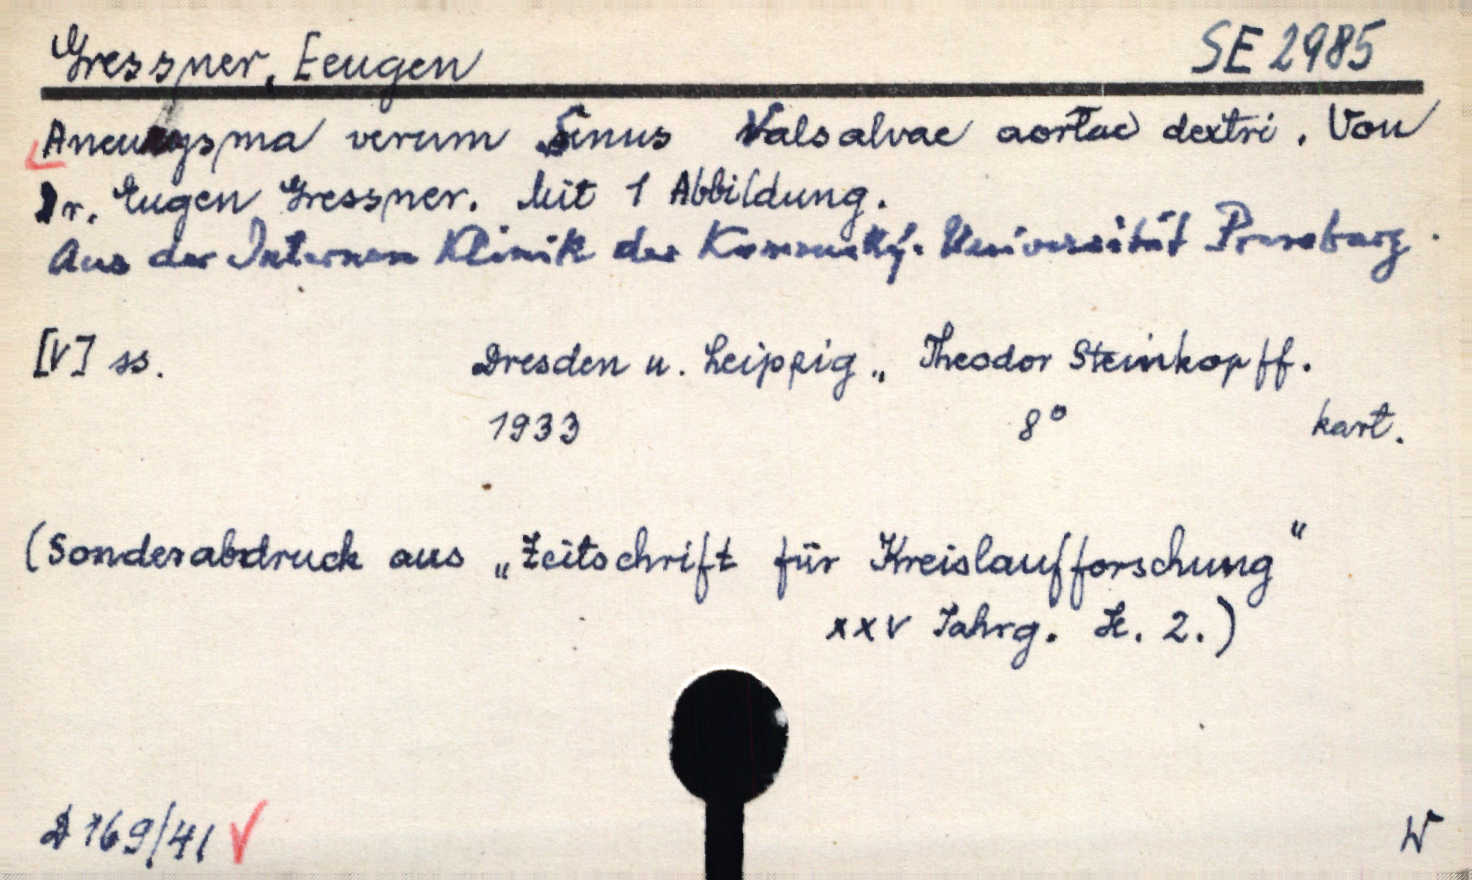 Gressner, Eeugen SE 2985
Aneurysma verum Sinus Valsalvae aortae dextri. Von
Dr. Eugen Gressner. Mit 1 Abbildung.
Aus der Internen Klinik der Komenský-Universität Pressburg.
[V] ss. Dresden u. Leipzig „ Theodor Steinkopff.
1933 8° kart.
(Sonderabdruck aus „Zeitschrift für Kreislaufforschung“
XXV Jahrg. H. 2.)
D 169/41 W